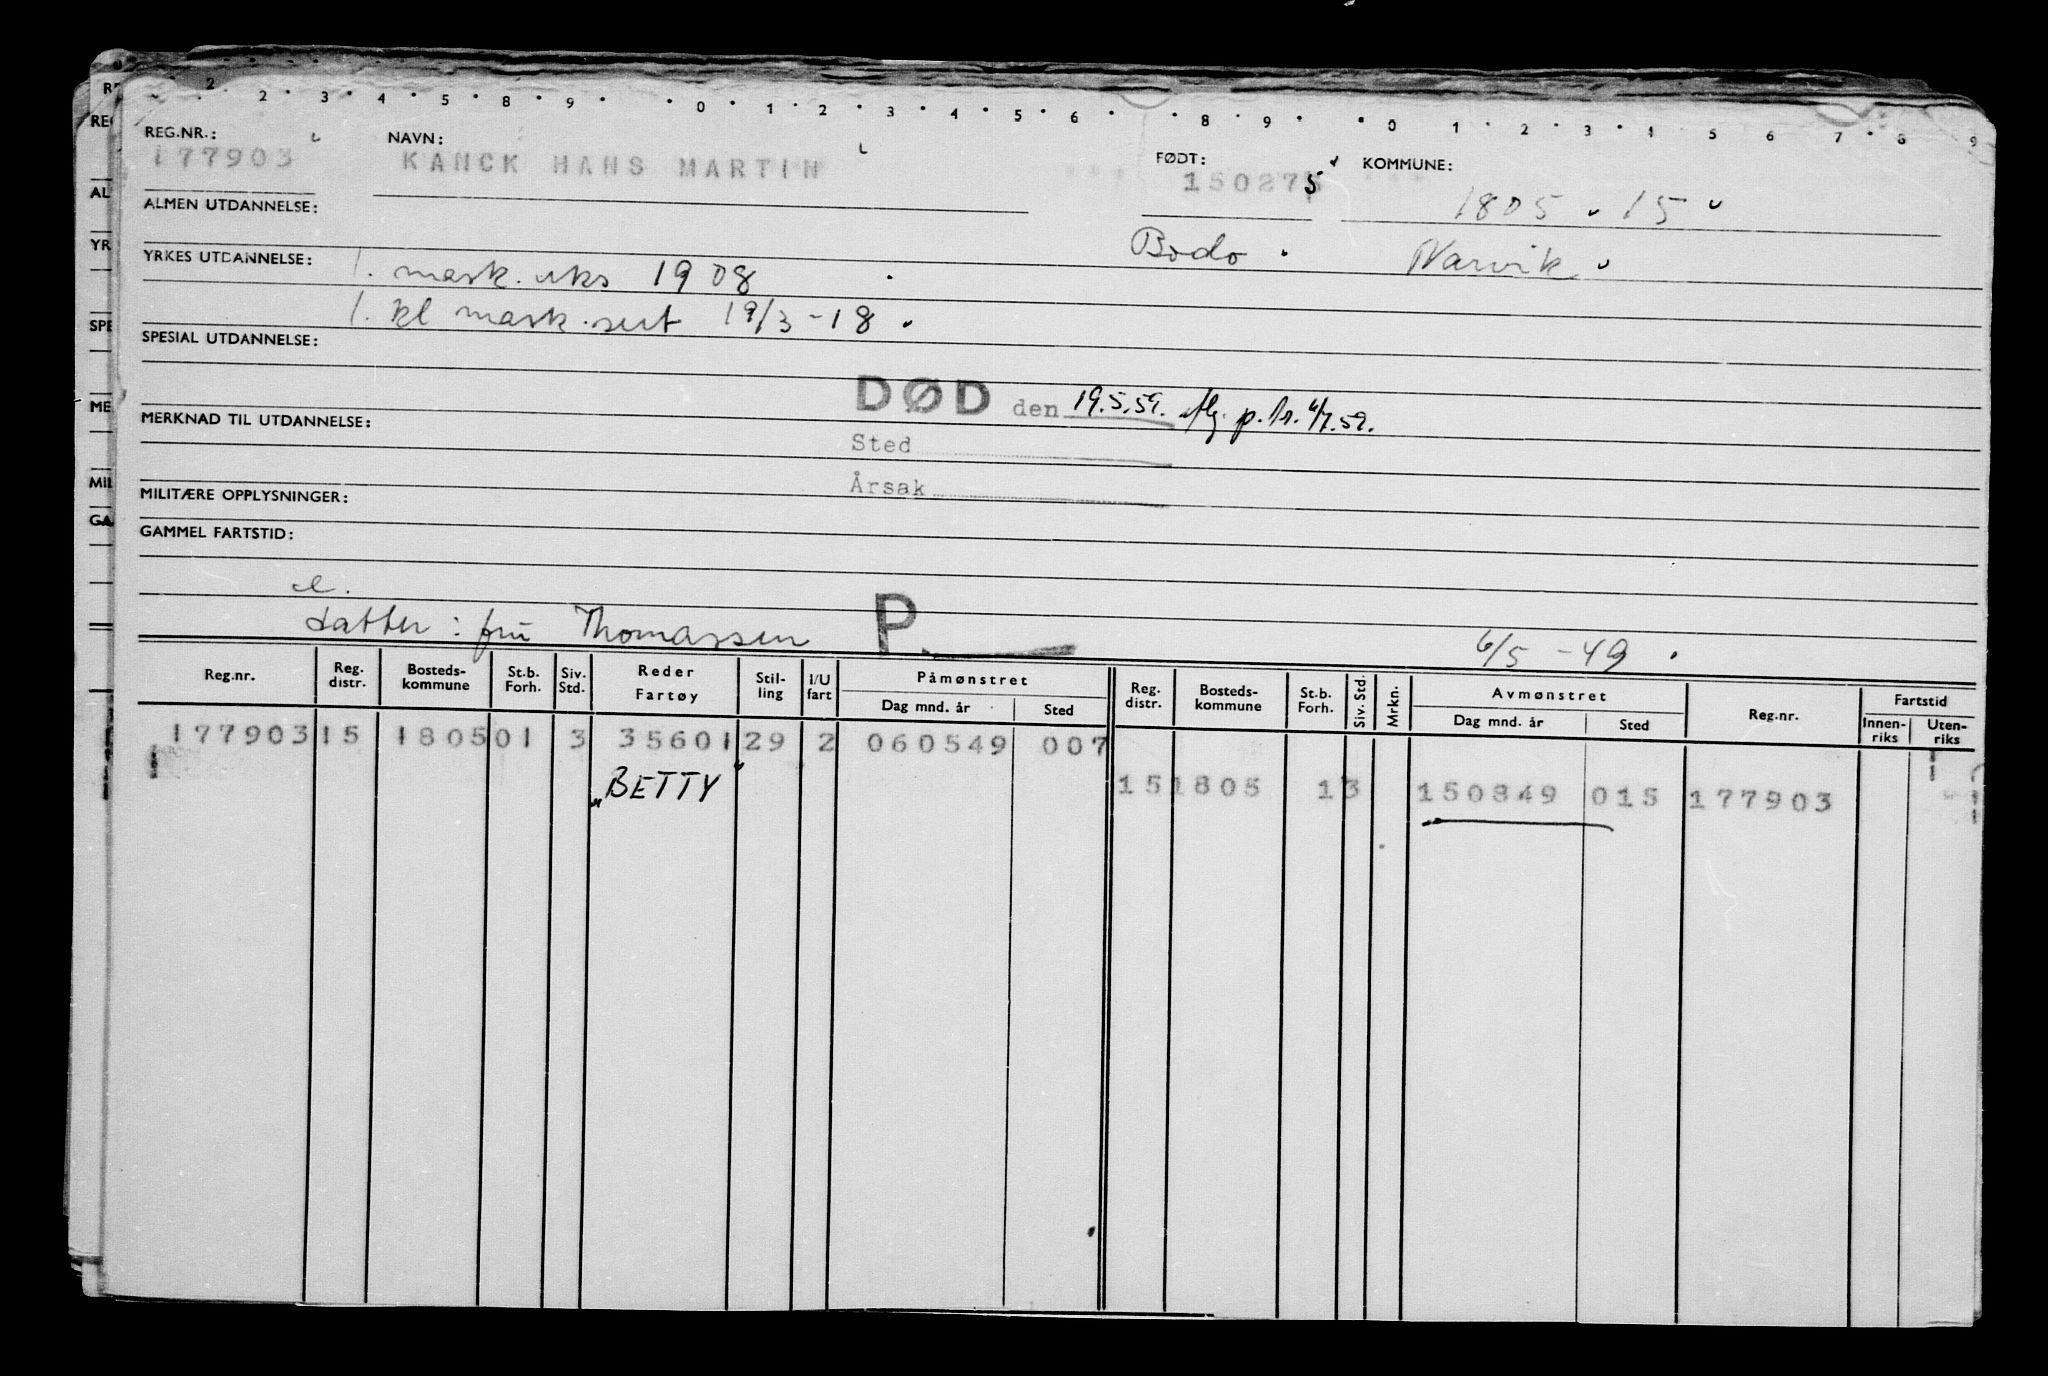 2 2 3 4 5 8 9 0 1 2 3 4 5 6 8 9 0 1 2 3 4 5 6 7 8 9
REG.NR.: NAVN: FØDT: KOMMUNE:
177903 KANCK HANS MARTIN 15027 5 1805 15
ALMEN UTDANNELSE:
Bodo Narvik
YRKES UTDANNELSE: 1. mask. uks 1908
1. kl mask. sert 19/3-18
SPESIAL UTDANNELSE:
DØD den 19.5.59. iflg. p. kr. 6/7.59.
MERKNAD TIL UTDANNELSE:
Sted
Årsak
MILITÆRE OPPLYSNINGER:
GAMMEL FARTSTID:
e.
datter: fru Thomassen P. 6/5-49
Reg.nr. Reg. distr. Bosteds-kommune St.b. Forh. Siv. Std. Reder Fartøy Stil-ling I/U fart Påmønstret Dag mnd. år Sted Reg. distr. Bosteds-kommune St.b. Forh. Siv. Std. Mrkn. Avmønstret Dag mnd. år Sted Reg.nr. Fartstid Innen-riks Uten-riks
177903 15 1805 01 3 35601 29 2 060549 007
„BETTY" 15 1805 1 3 150849 015 177903